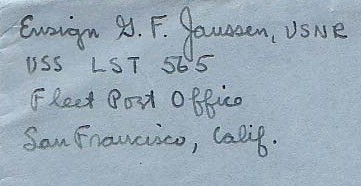 Ensign G. F. Janssen, USNR
USS LST 565
Fleet Post Office
San Francisco, Calif.